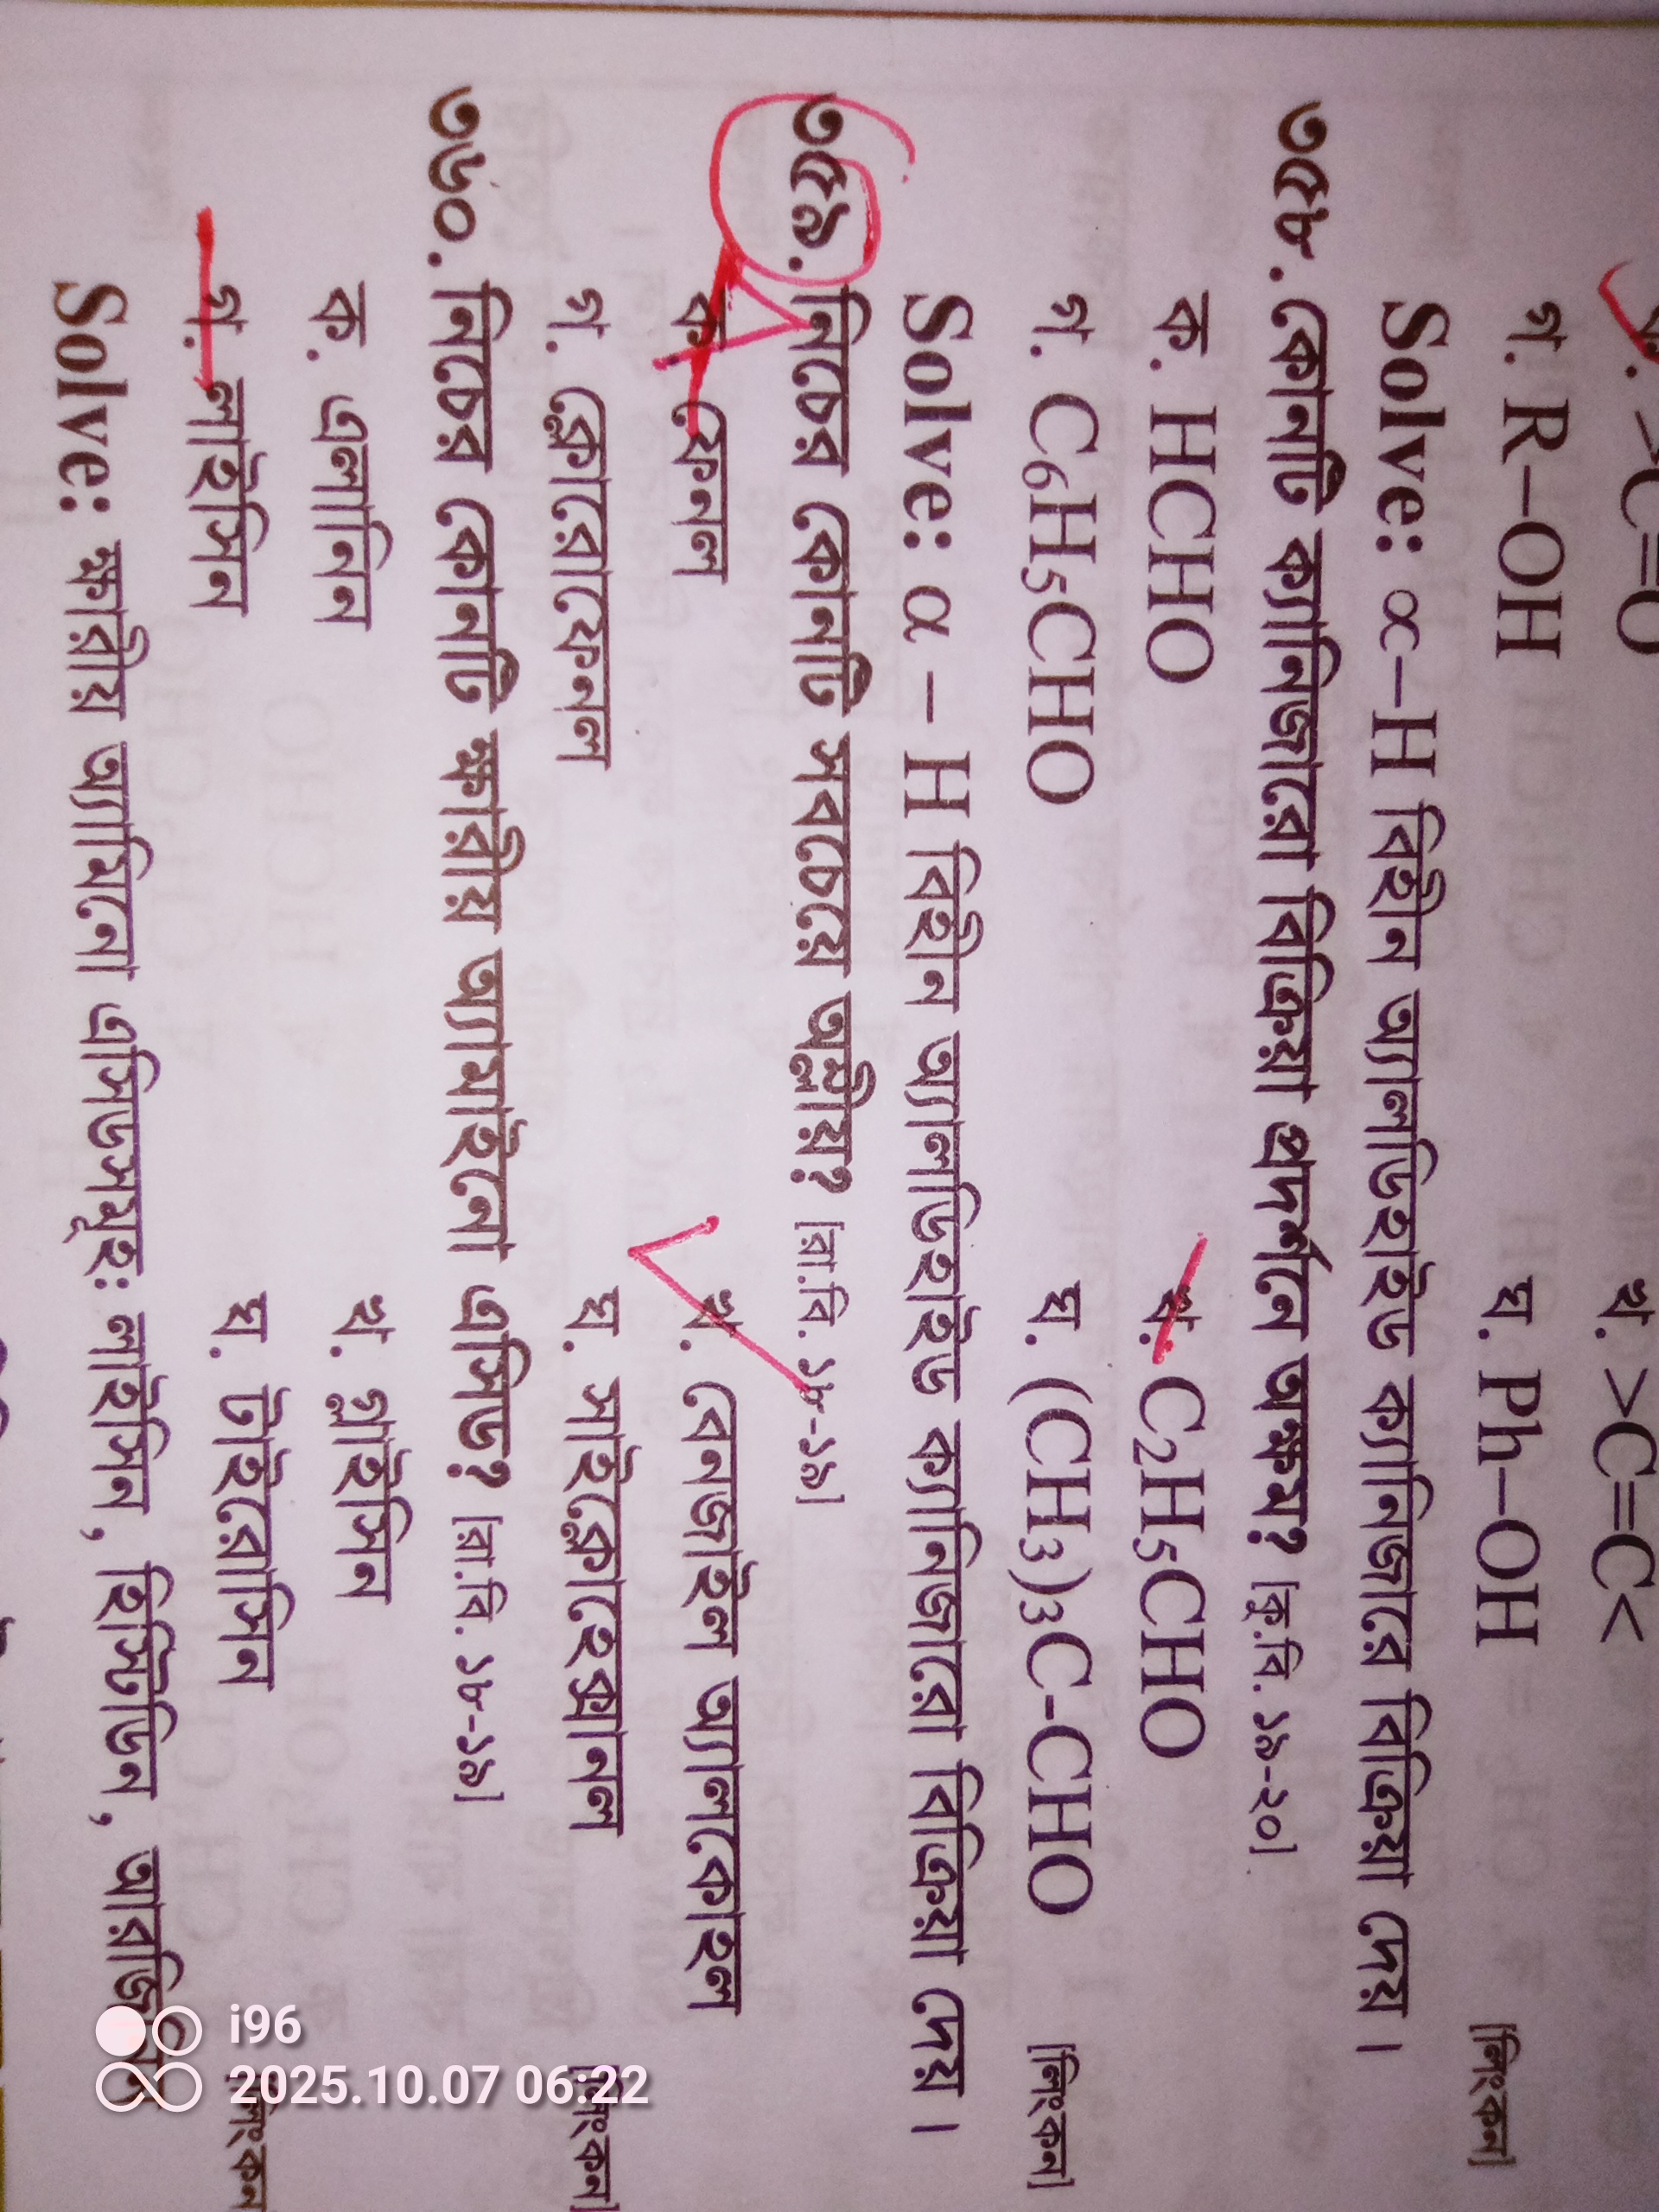 >C=O
খ. >C=C<
গ. R–OH
ঘ. Ph–OH
[লিংকন]
Solve: ∝–H বিহীন অ্যালডিহাইড ক্যানিজারে বিক্রিয়া দেয়।
৩৫৮. কোনটি ক্যানিজারো বিক্রিয়া প্রদর্শনে অক্ষম? [কু.বি. ১৯-২০]
ক. HCHO
খ. C₂H₅CHO
গ. C₆H₅CHO
ঘ. (CH₃)₃C-CHO
[লিংকন]
Solve: α – H বিহীন অ্যালডিহাইড ক্যানিজারো বিক্রিয়া দেয়।
৩৫৯. নিচের কোনটি সবচেয়ে অম্লীয়? [রা.বি. ১৮-১৯]
ক. ফেনল
খ. বেনজাইল অ্যালকোহল
গ. ক্লোরোফেনল
ঘ. সাইক্লোহেক্সানল
[লিংকন]
৩৬০. নিচের কোনটি ক্ষারীয় অ্যামাইনো এসিড? [রা.বি. ১৮-১৯]
ক. এলানিন
খ. গ্লাইসিন
গ. লাইসিন
ঘ. টাইরোসিন
লিংকন
Solve: ক্ষারীয় অ্যামিনো এসিডসমূহ: লাইসিন, হিস্টিডিন,
i96
2025.10.07 06:22